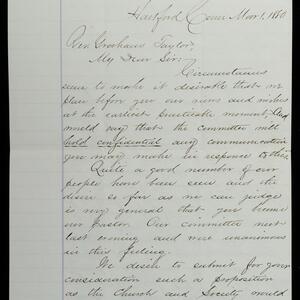 Hartford Conn Mar 1, 1880
Rev. Graham Taylor,
My Dear Sir:
Circumstances
seem to make it desirable that we
place before you our views and wishes
at the earliest practicable moment, and
would say that the committee will
hold confidential any communication
you may make in response to this.
Quite a good number of our
people have been seen and the
desire so far as we can judge
is very general that you become
our Pastor. Our committee met
last evening and were unanimous
in this feeling.
We desire to submit for your
consideration such a proposition
as the Church and Society would